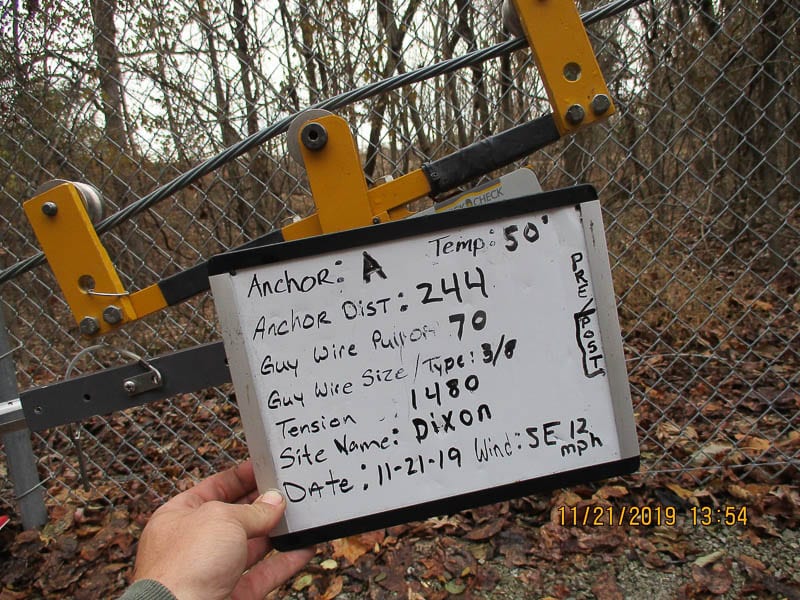 CHECK
Anchor: A Temp: 50°
Anchor Dist: 244
Guy Wire 70
Guy Wire Size/Type: 3/8
Tension : 1480
Site Name: Dixon
Date: 11-21-19 Wind: SE 12 mph
PRE/POST
11/21/2019 13:54